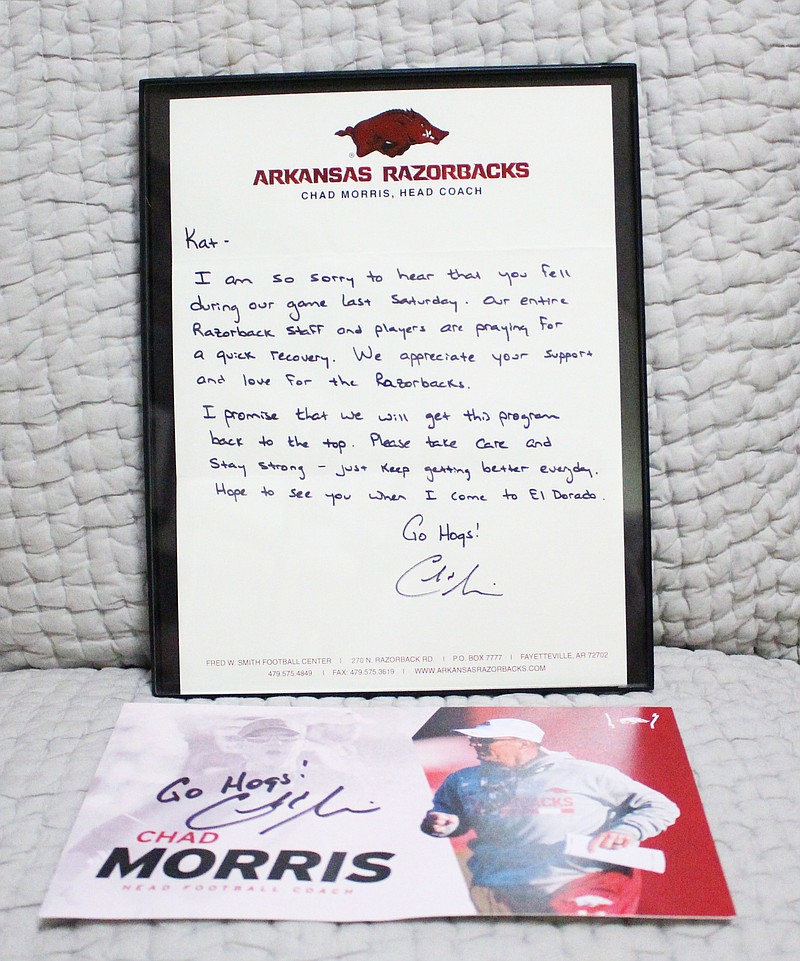 ARKANSAS RAZORBACKS
CHAD MORRIS, HEAD COACH
Kat -
I am so sorry to hear that you fell
during our game last Saturday. Our entire
Razorback staff and players are praying for
a quick recovery. We appreciate your support
and love for the Razorbacks.
I promise that we will get this program
back to the top. Please take care and
stay strong - just keep getting better everyday.
Hope to see you when I come to El Dorado.
Go Hogs!
FRED W. SMITH FOOTBALL CENTER | 270 N. RAZORBACK RD. | P.O. BOX 7777 | FAYETTEVILLE, AR 72702
479.575.4849 | FAX: 479.575.3619 | WWW.ARKANSASRAZORBACKS.COM
Go Hogs!
CHAD
MORRIS
HEAD FOOTBALL COACH